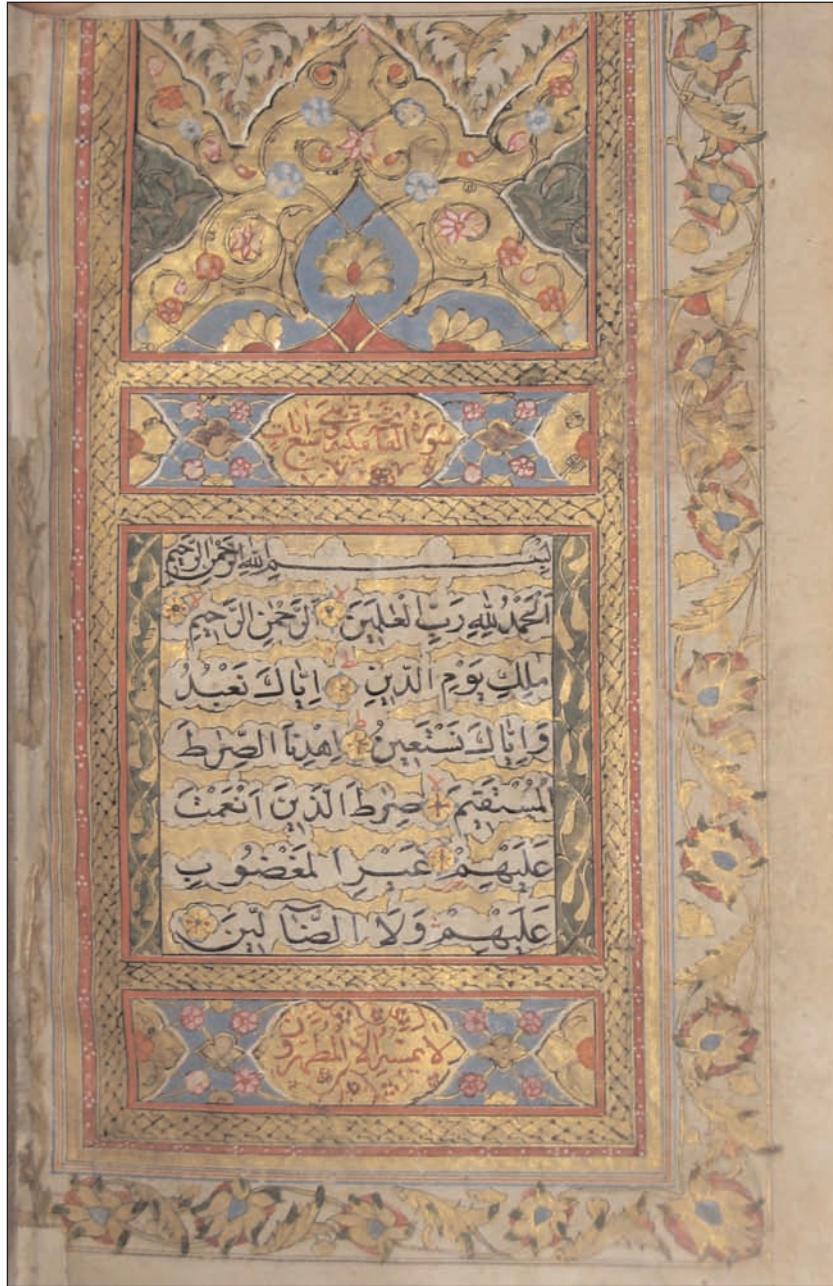 سورة الفاتحة مكية وهي سبع ايات
بِسْمِ اللّٰهِ الرَّحْمٰنِ الرَّحِيمِ
اَلْحَمْدُ لِلّٰهِ رَبِّ الْعٰلَمِينَ الرَّحْمٰنِ الرَّحِيمِ
مٰلِكِ يَوْمِ الدِّينِ اِيَّاكَ نَعْبُدُ
وَاِيَّاكَ نَسْتَعِينُ اِهْدِنَا الصِّرٰطَ
الْمُسْتَقِيمَ صِرٰطَ الَّذِينَ اَنْعَمْتَ
عَلَيْهِمْ غَيْرِ الْمَغْضُوبِ
عَلَيْهِمْ وَلَا الضَّآلِّينَ
لا يمسه الا المطهرون